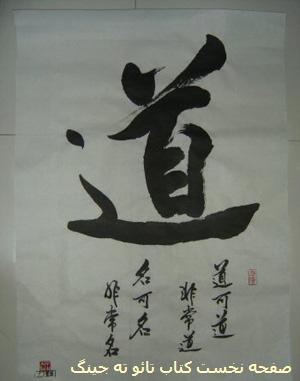 道
道可道
非常道
名可名
非常名
صفحه نخست کتاب تائو ته جینگ